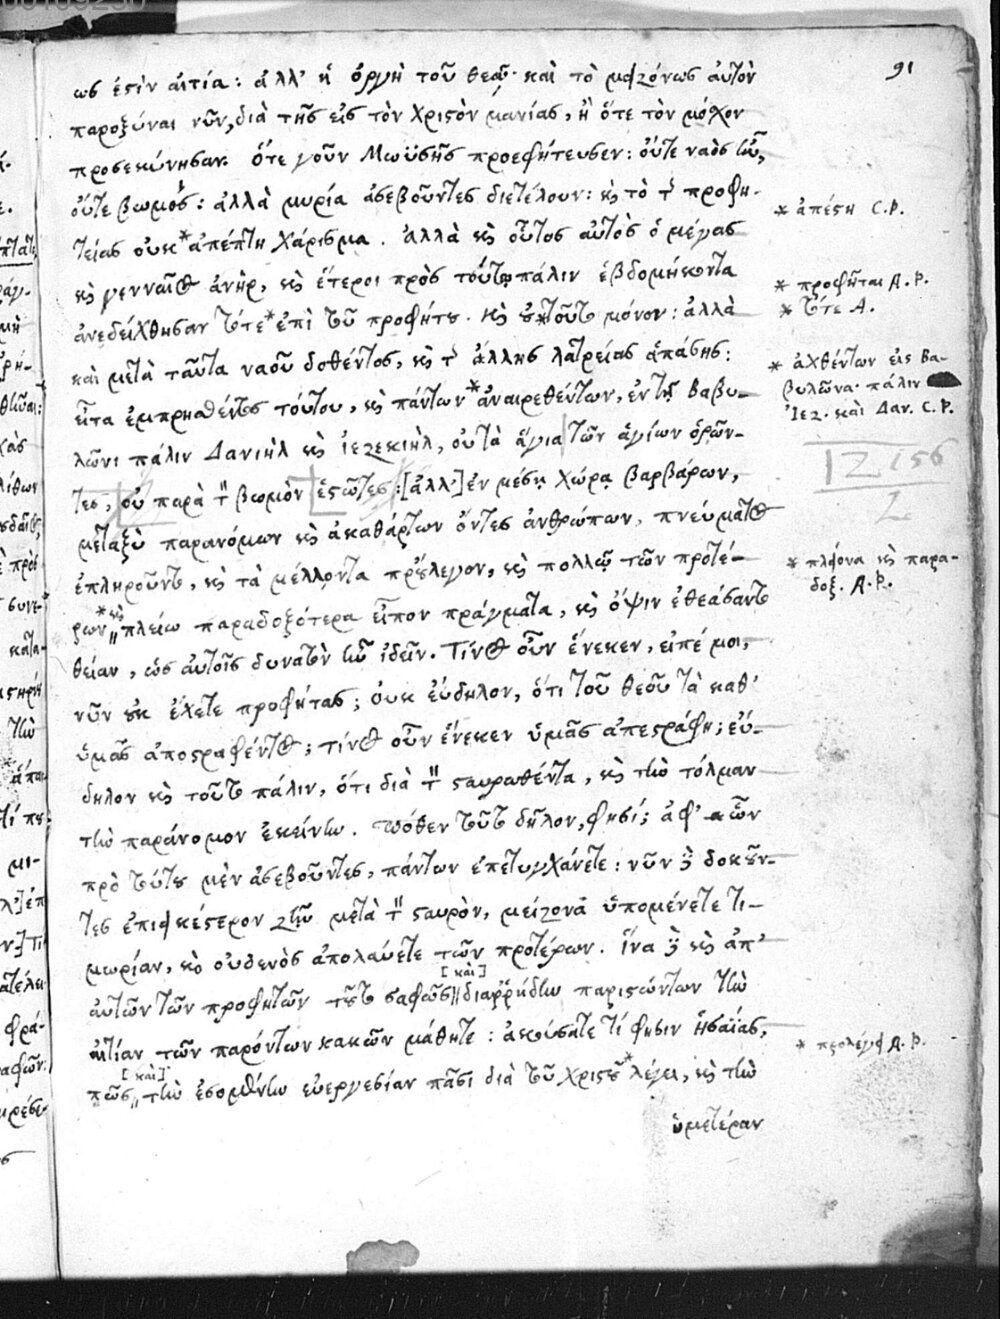 91
ως ἐστὶν αἰτία: ἀλλ' ἡ ὀργὴ τοῦ θεοῦ· καὶ τὸ μειζόνως αὐτὸν
παροξύναι νῦν, διὰ τῆς εἰς τὸν Χριστὸν μανίας, ἢ ὅτε τὸν μόσχον
προσεκύνησαν. ὅτε γοῦν Μωϋσῆς προεφήτευσεν: οὔτε ναὸς ἦν,
οὔτε βωμός: ἀλλὰ μυρία ἀσεβοῦντες διετέλουν: κὶ τὸ τ̃ προφη-
τείας οὐκ *ἀπέπτη χάρισμα. ἀλλὰ κὶ οὗτος αὐτὸς ὁ μέγας
* ἀπέστη C.P.
κὶ γενναῖος ἀνὴρ, κὶ ἕτεροι πρὸς τούτῳ πάλιν ἑβδομήκοντα
ἀνεδείχθησαν τότε *ἐπὶ τοῦ προφήτου. κὶ οὐ *τοῦτο μόνον: ἀλλὰ
* προφῆται A.P.
* τότε A.
καὶ μετὰ ταῦτα ναοῦ δοθέντος, κὶ τ̃ ἄλλης λατρείας ἁπάσης:
εἶτα ἐμπρησθέντος τούτου, κὶ πάντων *ἀναιρεθέντων, ἐν τῇ Βαβυ-
* ἀχθέντων εἰς Βα-
βυλῶνα· πάλιν
Ἰεζ. καὶ Δαν. C.P.
λῶνι πάλιν Δανιὴλ κὶ Ἰεζεκιὴλ, οὐ τὰ ἅγια τῶν ἁγίων ὁρῶν-
τες, οὐ παρὰ τ̃ βωμὸν ἑστῶτες: [ἀλλ'] ἐν μέσῃ χώρᾳ βαρβάρων,
μεταξὺ παρανόμων κὶ ἀκαθάρτων ὄντες ἀνθρώπων, πνεύματος
ἐπληροῦντο, κὶ τὰ μέλλοντα προέλεγον, κὶ πολλῷ τῶν προτέ-
ρων *κὶ πλείω παραδοξότερα εἶπον πράγματα, κὶ ὄψιν ἐθεάσαντο
* πλείονα κὶ παρα-
δοξ. A.P.
θείαν, ὡς αὐτοῖς δυνατὸν ἦν ἰδεῖν. τίνος οὖν ἕνεκεν, εἰπέ μοι,
νῦν οὐκ ἔχετε προφήτας; οὐκ εὔδηλον, ὅτι τοῦ θεοῦ τὰ καθ'
ὑμᾶς ἀποστραφέντος; τίνος οὖν ἕνεκεν ὑμᾶς ἀπεστράφη; εὔ-
δηλον κὶ τοῦτο πάλιν, ὅτι διὰ τ̃ σταυρωθέντα, κὶ τὴν τόλμαν
τὴν παράνομον ἐκείνην. πόθεν τοῦτο δῆλον, φησί; ἀφ' ὧν
πρὸ τούτου μὲν ἀσεβοῦντες, πάντων ἐπετυγχάνετε: νῦν δὲ δοκοῦν-
τες ἐπιεικέστερον ζῆν μετὰ τ̃ σταυρὸν, μείζονα ὑπομένετε τι-
μωρίαν, κὶ οὐδενὸς ἀπολαύετε τῶν προτέρων. ἵνα δὲ κὶ ἀπ'
αὐτῶν τῶν προφητῶν τοῦτο σαφῶς [καὶ] διαῤῥήδην παριστώντων τὴν
αἰτίαν τῶν παρόντων κακῶν μάθητε: ἀκούσατε τί φησιν Ἡσαΐας,
πῶς [καὶ] τὴν ἐσομένην εὐεργεσίαν πᾶσι διὰ τοῦ Χριστοῦ *λέγει, κὶ τὴν
* προλέγει A.P.
ὑμετέραν